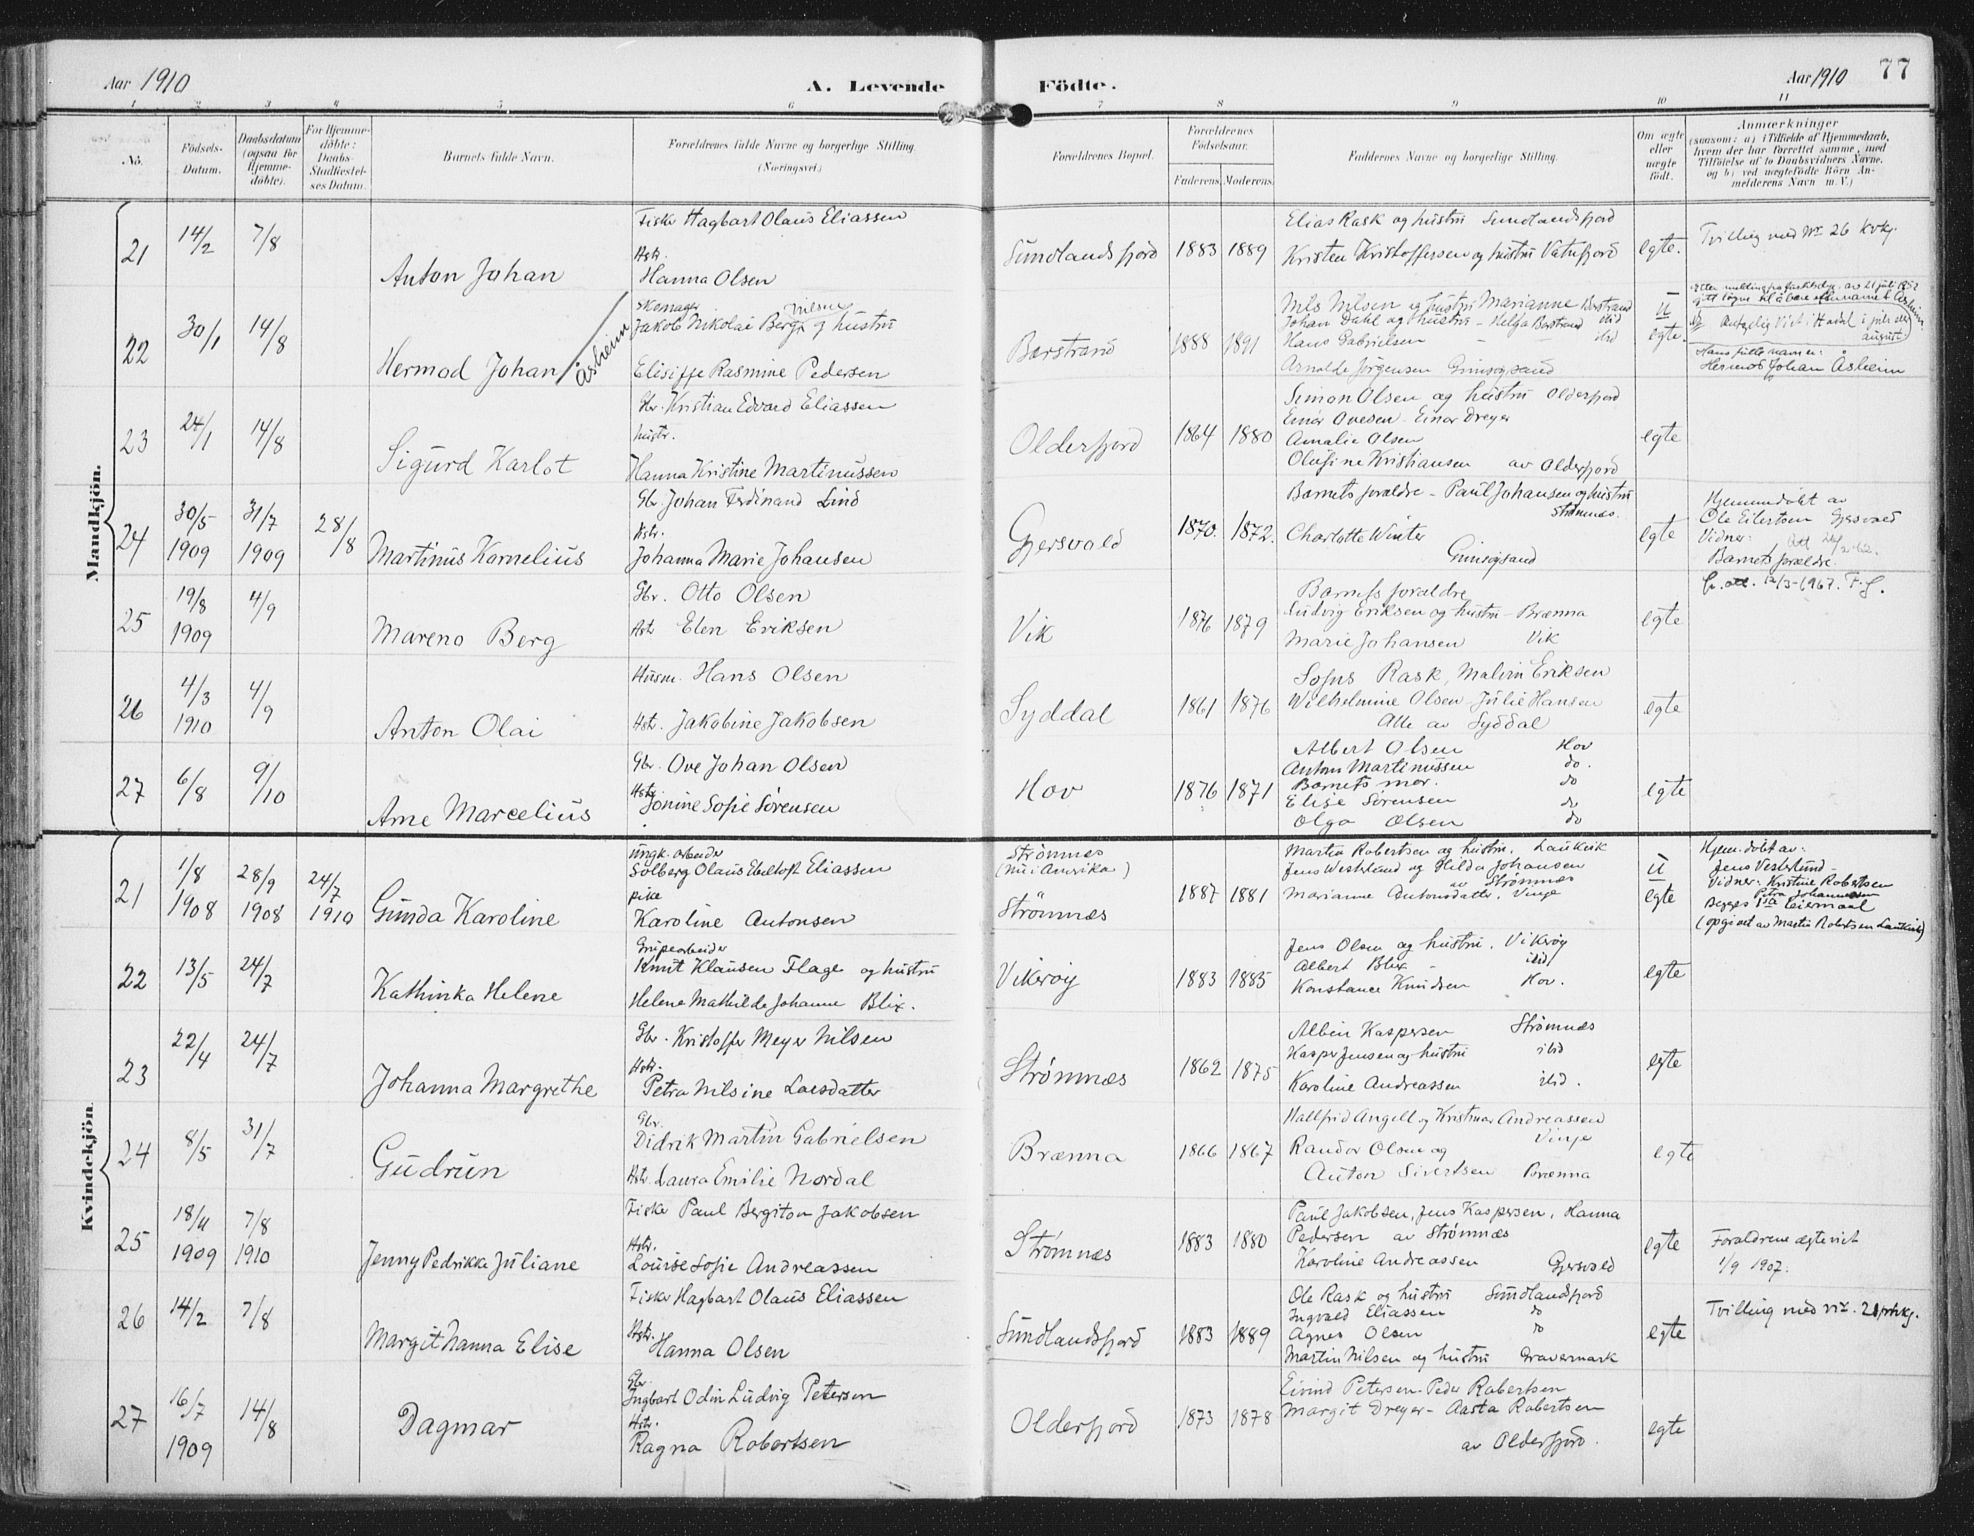 Aar 1910
A. Levende
Födte.
Aar 1910
77
1 2 3 4 5 6 7 8 9 10 11
No.
Födsels-
Datum.
Daabsdatum
(ogsaa for
Hjemme-
döbte).
For Hjemme-
döbte:
Daabs-
Stadfæstel-
ses Datum.
Barnets fulde Navn.
Forældrenes fulde Navne og borgerlige Stilling
(Næringsvei.)
Forældrenes Bopæl.
Forældrenes
Födselsaar.
Faderens. Moderens.
Faddernes Navne og borgerlige Stilling.
Om ægte
eller
uægte
födt.
Anmærkninger
(saasom: a) i Tilfælde af Hjemmedaab,
hvem der har forrettet samme, med
Tilföielse af to Daabsvidners Navne.
og b) ved uægtefödte Börn An-
melderens Navn m. V.)
Mandkjön.
21
14/2
7/8
Anton Johan
Fisker Hagbart Olaus Eliassen
Hstr.
Hanna Olsen
Sundlandsfjord
1883 1889
Elias Rask og hustru Sundlandsfjord
Kristen Kristoffersen og hustru Vatnfjord
egte.
Tvilling med Nr 26 kvkj.
22
30/1
14/8
Hermod Johan / Åsheim
Jakob Nikolai Berg Nilsen og hustru
Elisiffe Rasmine Pedersen
Barstrand
1888 1891
Nils Nilsen og hustru Marianne Borstrand
Johan Dahl og hustru - Helga Barstrand ibid
Hans Gabrielsen - ibid
Arnolde Jörgensen Gimsøysand
u
egte.
Hans fulle navn er:
Hermod Johan Åsheim
23
24/1
14/8
Sigurd Karlot
Gbr. Kristian Edvard Eliassen
hustr.
Hanna Kristine Martinussen
Olderfjord
1864 1880
Simon Olsen og hustru Olderfjord
Einar Ovesen - Einar Dreyer
Amalie Olsen
Olufine Kristiansen av Olderfjord
egte
24
30/5
1909
31/7
1909
28/8
Martinus Kornelius
Gbr Johan Ferdinand Lind
Hstr.
Johanna Marie Johansen
Gjersvold
1870. 1872.
Barnets forældre - Paul Johansen og hustru
Strømnes.
Charlotte Winter
Gimsøysand
egte
Hjemmedøbt av
Ole Eilertsen Gjersvold
Vidner:
Barnets forældre.
25
19/8
1909
4/9
Mareno Berg
Gbr. Otto Olsen
Hstr Elen Eriksen
Vik
1876 1879
Barnets forældre
Ludvig Eriksen og hustru - Brænna
Marie Johansen Vik
egte
26
4/3
1910
4/9
Anton Olai
Husm. Hans Olsen
Hstr. Jakobine Jakobsen
Syddal
1861 1876
Sofus Rask, Malin Eriksen
Wilhelmine Olsen Julie Hansen
Alle av Syddal
egte
27
6/8
9/10
Arne Marcelius
Gbr. Ove Johan Olsen
Hstr Jonine Sofie Sørensen
Hov
1876 1871
Albert Olsen Hov
Anton Martinussen do.
Barnets mor. do
Elise Sørensen do
Olga Olsen do
egte
Kvindekjön.
21
1/8
1908
28/9
1908
24/7
1910
Gunda Karoline
ungk. arbeider
Solberg Olaus Ebeltoft Eliassen
pike
Karoline Antonsen
Strømnes
(nu i Amerika)
Strømnæs
1887 1881
Martin Robertsen og hustru. Laukvik
Jens Westlund og Hilda Johansen
av Strømnæs
Marianne Antonsdatter. Vinje
u
egte
Hjem. døbt av:
Jens Vesterlund -
Vidner: Kristine Robertsen
Petra Johannesen
Begges 1ste Leiermaal
(opgivet av Martin Robertsen Laukvik)
22
13/5
24/7
Kathinka Helene
Grubearbeider
Knut Klausen Flage og hustru
Helene Mathilde Johanne Blix.
Vikerøy
1883 1885
Jens Olsen og hustru. Vikerøy
Albert Blix - ibid
Konstance Knudsen Hov.
egte
23
22/4
24/7
Johanna Margrethe
Gbr. Kristoffer Meyer Nilsen
Hstr.
Petra Nilsine Larsdatter
Strømnæs
1862 1875
Albin Kaspersen Strømnæs
Kasper Jensen og hustru ibid
Karoline Andreassen ibid.
egte
24
8/5
31/7
Gudrun
Gbr.
Didrik Martin Gabrielsen
Hstr. Laura Emilie Nordal
Brænna
1866 1867
Hallfrid Angell og Kristmar Andreassen
Vinje
Randor Olsen og
Anton Sivertsen Brænna
egte
25
18/4
1909
7/8
1910
Jenny Pedrikke Juliane
Fisker Paul Bergiton Jakobsen
Hstr.
Louise Sofie Andreassen
Strømnæs
1883 1880
Paul Jakobsen, Jens Kaspersen, Hanna
Pedersen av Strømnæs
Karoline Andreassen Gjersvold
egte
Forældrene egteviet
1/9 1907.
26
14/2
7/8
Margit Nanna Elise
Fisker Hagbart Olaus Eliassen
Hstr.
Hanna Olsen
Sundlandsfjord
1883 1889
Ole Rask og hustru Sundlandsfjord
Ingvald Eliassen do
Agnes Olsen do
Martin Nilsen og hustru Gravermark
egte
Tvilling med nr. 21 mkj.
27
16/7
1909
14/8
Dagmar
Gbr.
Ingbart Odin Ludvig Petersen
Hstr.
Ragna Robertsen
Olderfjord
1873 1878
Eivind Petersen - Peder Robertsen
Margit Dreyer - Aasta Robertsen
av Olderfjord.
egte